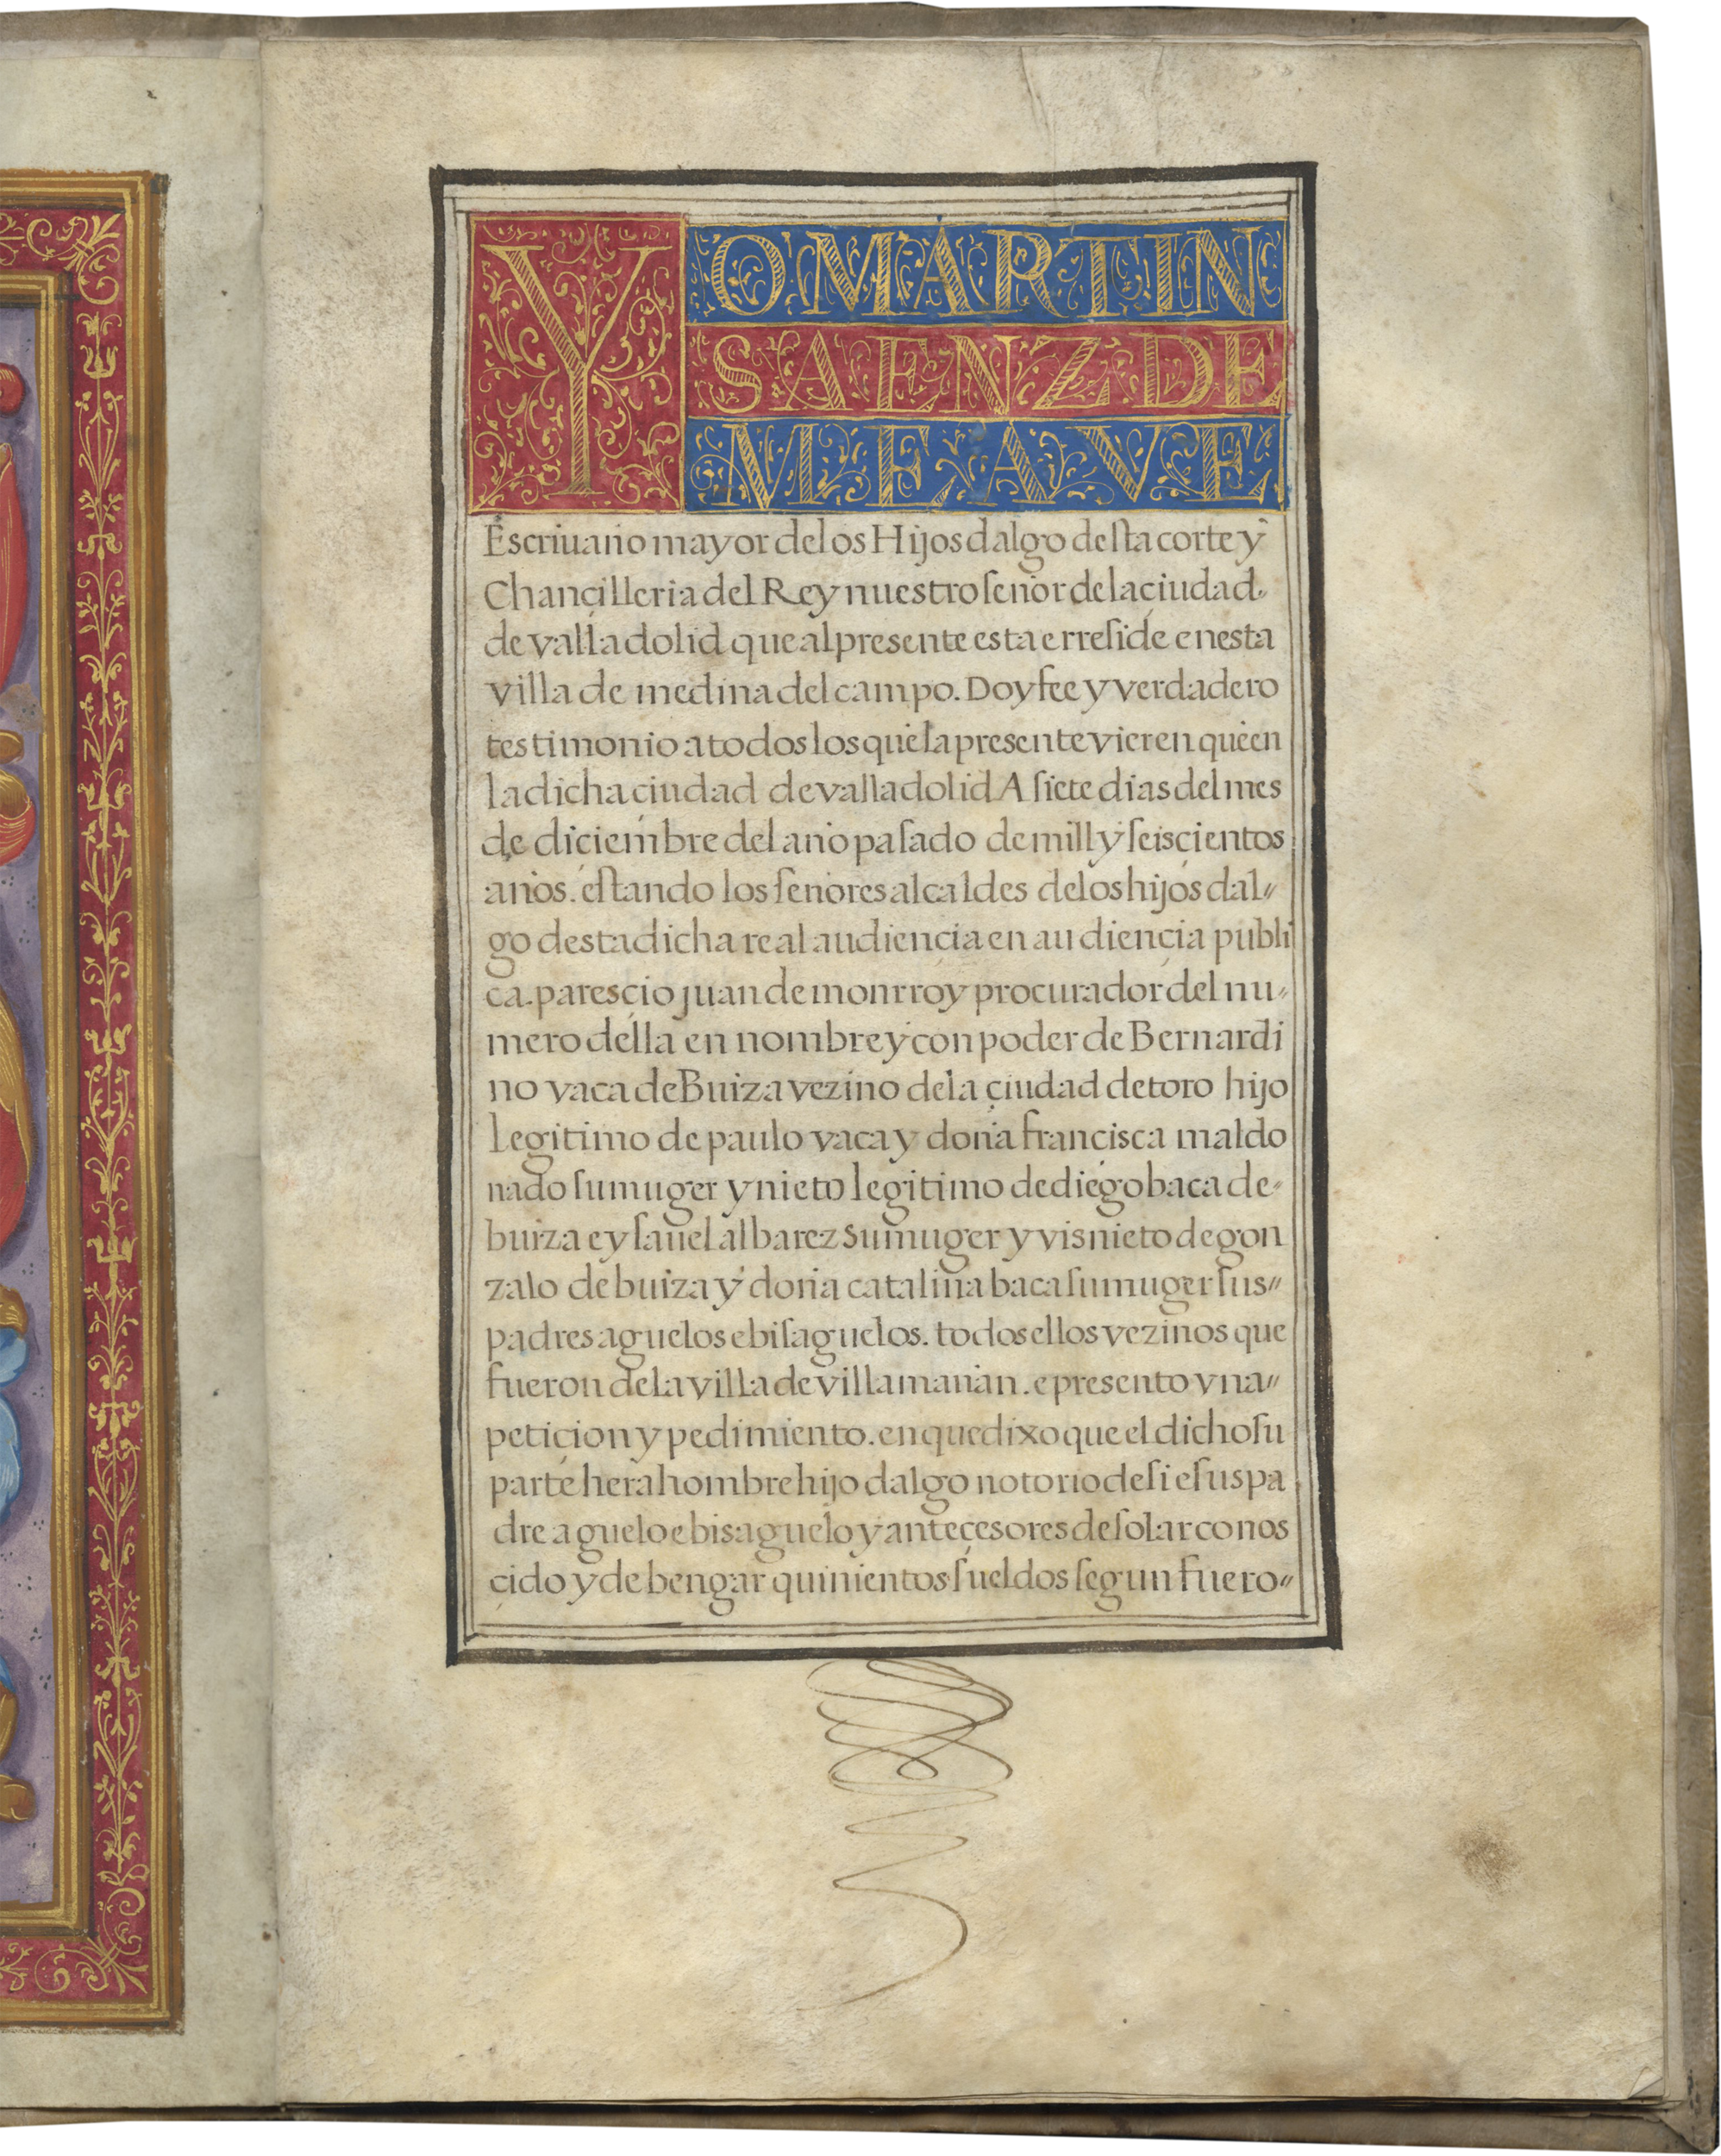 YO MARTIN
SAENZ DE
MEAVE
Escriuano mayor de los Hijos dalgo desta corte y
Chançilleria del Rey nuestro señor de la çiudad
de valladolid que al presente esta e rreside en esta
villa de medina del campo. Doy fee y verdadero
testimonio a todos los que la presente vieren que en
la dicha çiudad de valladolid A siete dias del mes
de diciembre del año pasado de mill y seisçientos
años. estando los señores alcaldes de los hijos dal//
go desta dicha real audiençia en audiençia publi
ca. paresçio juan de monrroy procurador del nu//
mero della en nombre y con poder de Bernardi
no vaca de Buiza vezino de la çiudad de toro hijo
legitimo de paulo vaca y doña françisca maldo
nado su muger y nieto legitimo de diego baca de//
buiza e ysauel albarez su muger y visnieto de gon
zalo de buiza y doña catalina baca su muger sus//
padres aguelos e bisaguelos. todos ellos vezinos que
fueron de la villa de villamañan. e presento vna//
petiçion y pedimiento. en que dixo que el dicho su
parte hera hombre hijo dalgo notorio de si e sus pa
dre aguelo e bisaguelo y anteçesores de solar conos
çido y de bengar quinientos sueldos segun fuero//